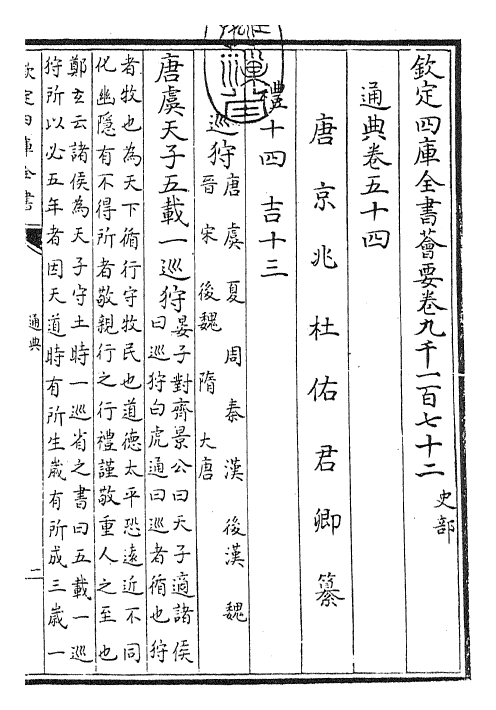 欽定四庫全書薈要卷九千一百七十二 史部
通典卷五十四
唐京兆杜佑君卿纂
禮十四 吉十三
巡狩 唐 虞 夏 周 秦 漢 後漢 魏
晉 宋 後魏 隋 大唐
唐虞天子五載一巡狩 晏子對齊景公曰天子適諸侯
曰巡狩白虎通曰巡者循也狩
者牧也為天下循行守牧民也道德太平恐遠近不同
化幽隱有不得所者敬親行之行禮謹敬重人之至也
鄭玄云諸侯為天子守土時一巡省之書曰五載一巡
狩所以必五年者因天道時有所生歲有所成三歲一
欽定四庫全書
通典